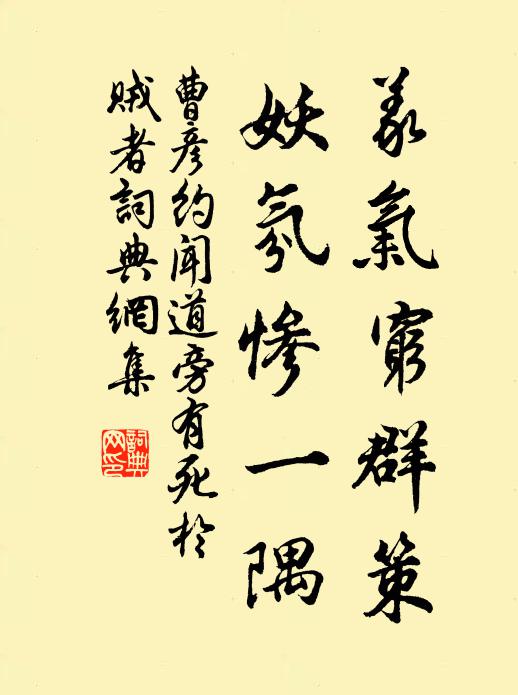 義氣窮群策
妖氛慘一隅
曹彥約聞道旁有死於
賊者詞典網集
詞典
网印